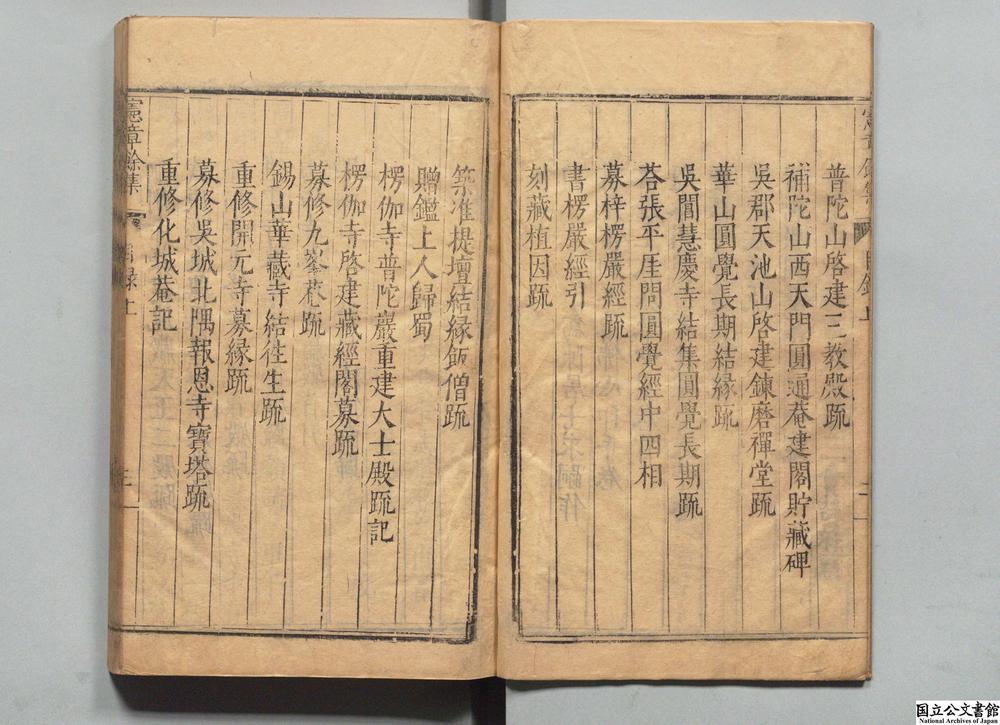 普陀山啓建三教殿䟽
補陀山西天門圓通菴建閣貯藏碑
吳郡天池山啓建鍊磨禪堂䟽
華山圓覺長期結縁䟽
吳閶慧慶寺結集圓覺長期䟽
荅張平厓問圓覺經中四相
募梓楞嚴經䟽
書楞嚴經引
刻藏植因䟽
築准提壇結縁飯僧䟽
贈鑑上人歸蜀
楞伽寺普陀巖重建大士殿䟽記
楞伽寺啓建藏經閣募䟽
募修九峯菴䟽
錫山華藏寺結徃生䟽
重修開元寺募縁䟽
募修吳城北隅報恩寺寶塔䟽
重修化城菴記
憲章餘集
目錄上
三
国立公文書館
National Archives of Japan